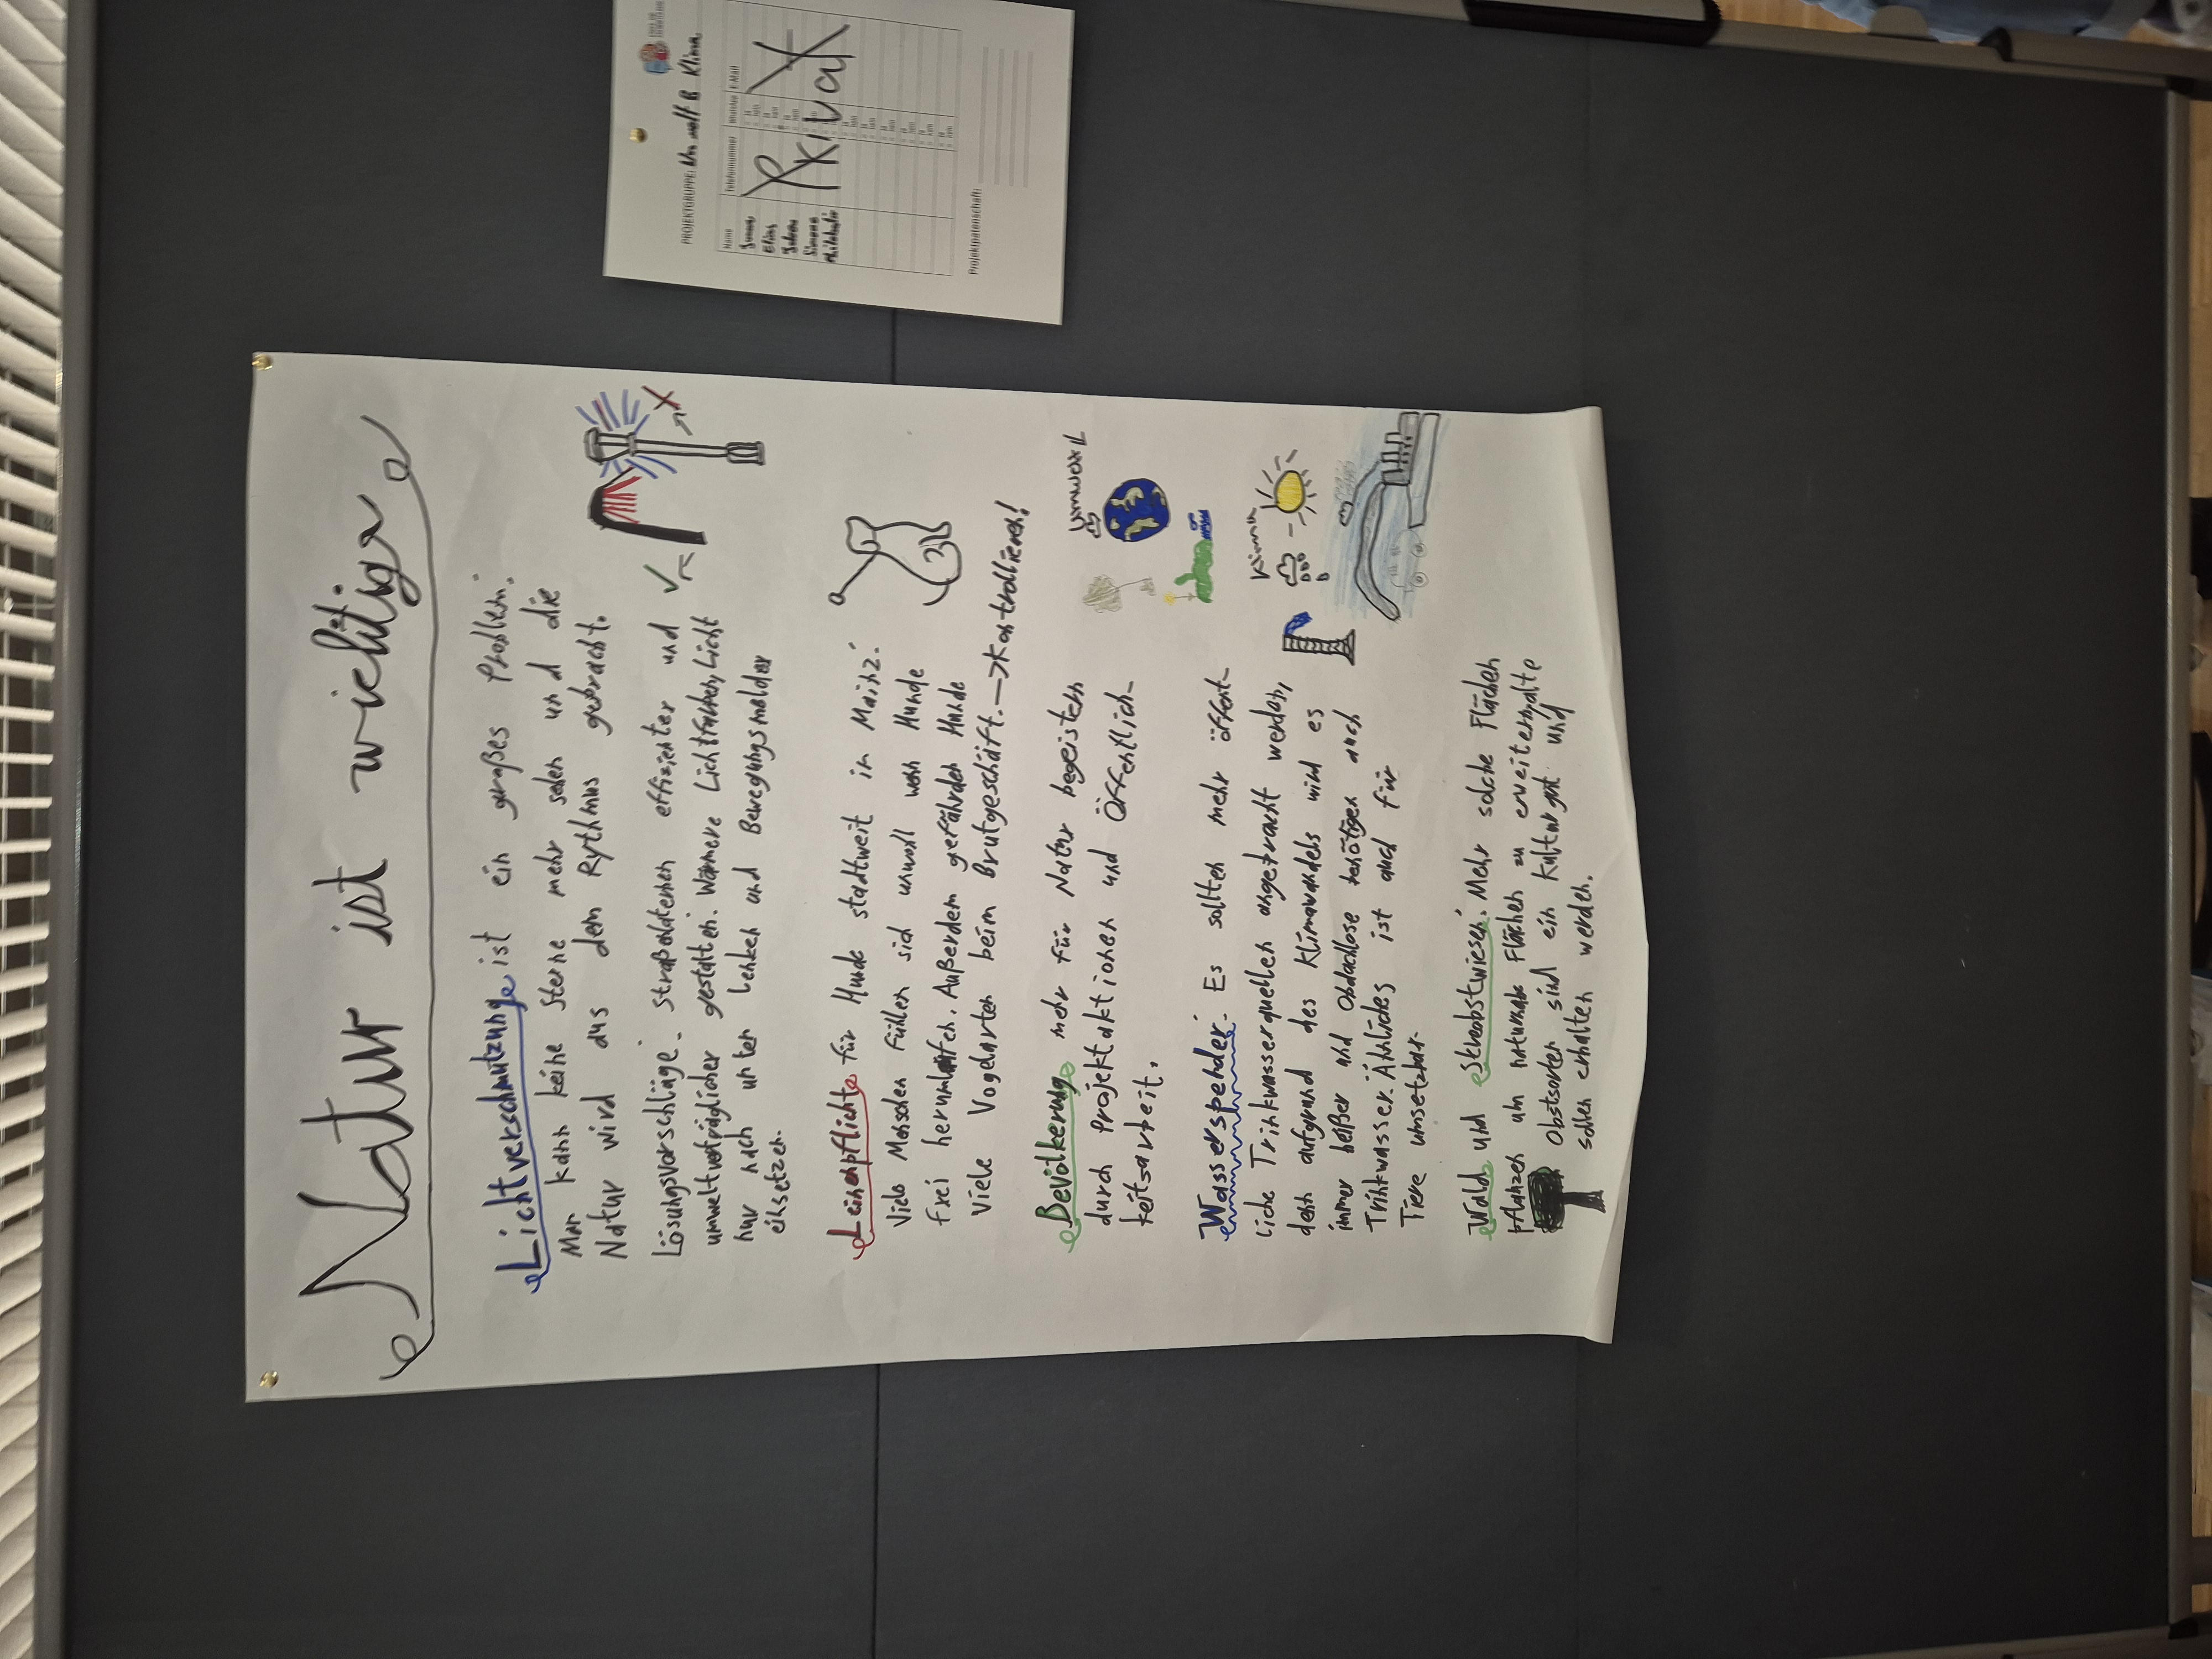 Natur ist wichtig
Lichtverschmutzung ist ein großes Problem.
Man kann keine Sterne mehr sehen und die
Natur wird aus dem Rythmus gebracht.
Lösungsvorschläge: Straßenlaternen effizienter und
umweltverträglicher gestalten. Wärmere Lichtfarben, Licht
nur nach unten lenken und Bewegungsmelder
einsetzen.
Leinenpflicht für Hunde stadtweit in Mainz.
Viele Menschen fühlen sich unwoll wenn Hunde
frei herumlaufen. Außerdem gefährden Hunde
Viele Vogelarten beim Brutgeschäft. → Kontrollieren!
Bevölkerung mehr für Natur begeistern
durch Projektaktionen und Öffentlich-
keitsarbeit.
Umwelt
Wasserspender: Es sollten mehr öffent-
liche Trinkwasserquellen angebracht werden,
denn aufgrund des Klimawandels wird es
immer heißer und Obdachlose benötigen auch
Trinkwasser. Ähnliches ist auch für
Tiere umsetzbar.
Klima
Wald und Streuobstwiesen: Mehr solche Flächen
pflanzen um naturnahe Flächen zu erweitern, alte
Obstsorten sind ein Kulturgut und
sollen erhalten werden.
PROJEKTGRUPPE: Umwelt & Klima
Name Telefonnummer WhatsApp E-Mail
Elias
Simona
Privat
Projektpatenschaft: